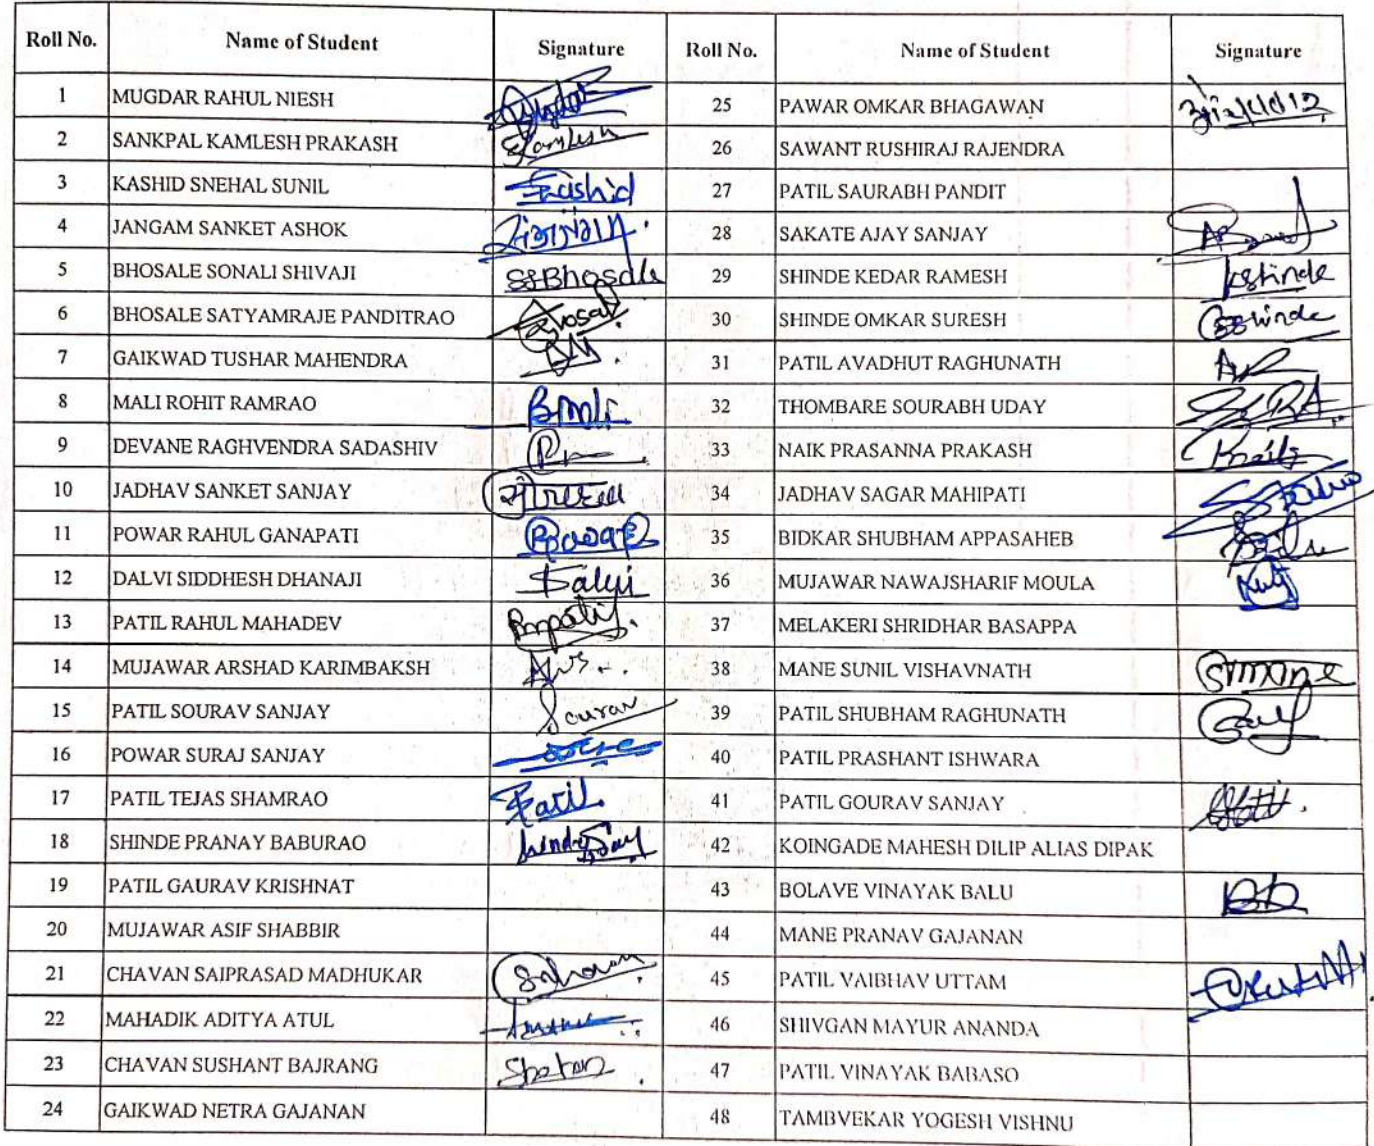 Roll No. Name of Student Signature Roll No. Name of Student Signature
1 MUGDAR RAHUL NIESH 25 PAWAR OMKAR BHAGAWAN
2 SANKPAL KAMLESH PRAKASH Kamlesh 26 SAWANT RUSHIRAJ RAJENDRA
3 KASHID SNEHAL SUNIL Kashid 27 PATIL SAURABH PANDIT
4 JANGAM SANKET ASHOK 28 SAKATE AJAY SANJAY
5 BHOSALE SONALI SHIVAJI SSBhosale 29 SHINDE KEDAR RAMESH
6 BHOSALE SATYAMRAJE PANDITRAO 30 SHINDE OMKAR SURESH
7 GAIKWAD TUSHAR MAHENDRA 31 PATIL AVADHUT RAGHUNATH
8 MALI ROHIT RAMRAO 32 THOMBARE SOURABH UDAY
9 DEVANE RAGHVENDRA SADASHIV 33 NAIK PRASANNA PRAKASH
10 JADHAV SANKET SANJAY 34 JADHAV SAGAR MAHIPATI
11 POWAR RAHUL GANAPATI 35 BIDKAR SHUBHAM APPASAHEB
12 DALVI SIDDHESH DHANAJI Dalvi 36 MUJAWAR NAWAJSHARIF MOULA
13 PATIL RAHUL MAHADEV Rmpatil 37 MELAKERI SHRIDHAR BASAPPA
14 MUJAWAR ARSHAD KARIMBAKSH 38 MANE SUNIL VISHAVNATH SVmane
15 PATIL SOURAV SANJAY Sourav 39 PATIL SHUBHAM RAGHUNATH
16 POWAR SURAJ SANJAY 40 PATIL PRASHANT ISHWARA
17 PATIL TEJAS SHAMRAO Patil 41 PATIL GOURAV SANJAY
18 SHINDE PRANAY BABURAO 42 KOINGADE MAHESH DILIP ALIAS DIPAK
19 PATIL GAURAV KRISHNAT 43 BOLAVE VINAYAK BALU
20 MUJAWAR ASIF SHABBIR 44 MANE PRANAV GAJANAN
21 CHAVAN SAIPRASAD MADHUKAR 45 PATIL VAIBHAV UTTAM
22 MAHADIK ADITYA ATUL 46 SHIVGAN MAYUR ANANDA
23 CHAVAN SUSHANT BAJRANG 47 PATIL VINAYAK BABASO
24 GAIKWAD NETRA GAJANAN 48 TAMBVEKAR YOGESH VISHNU